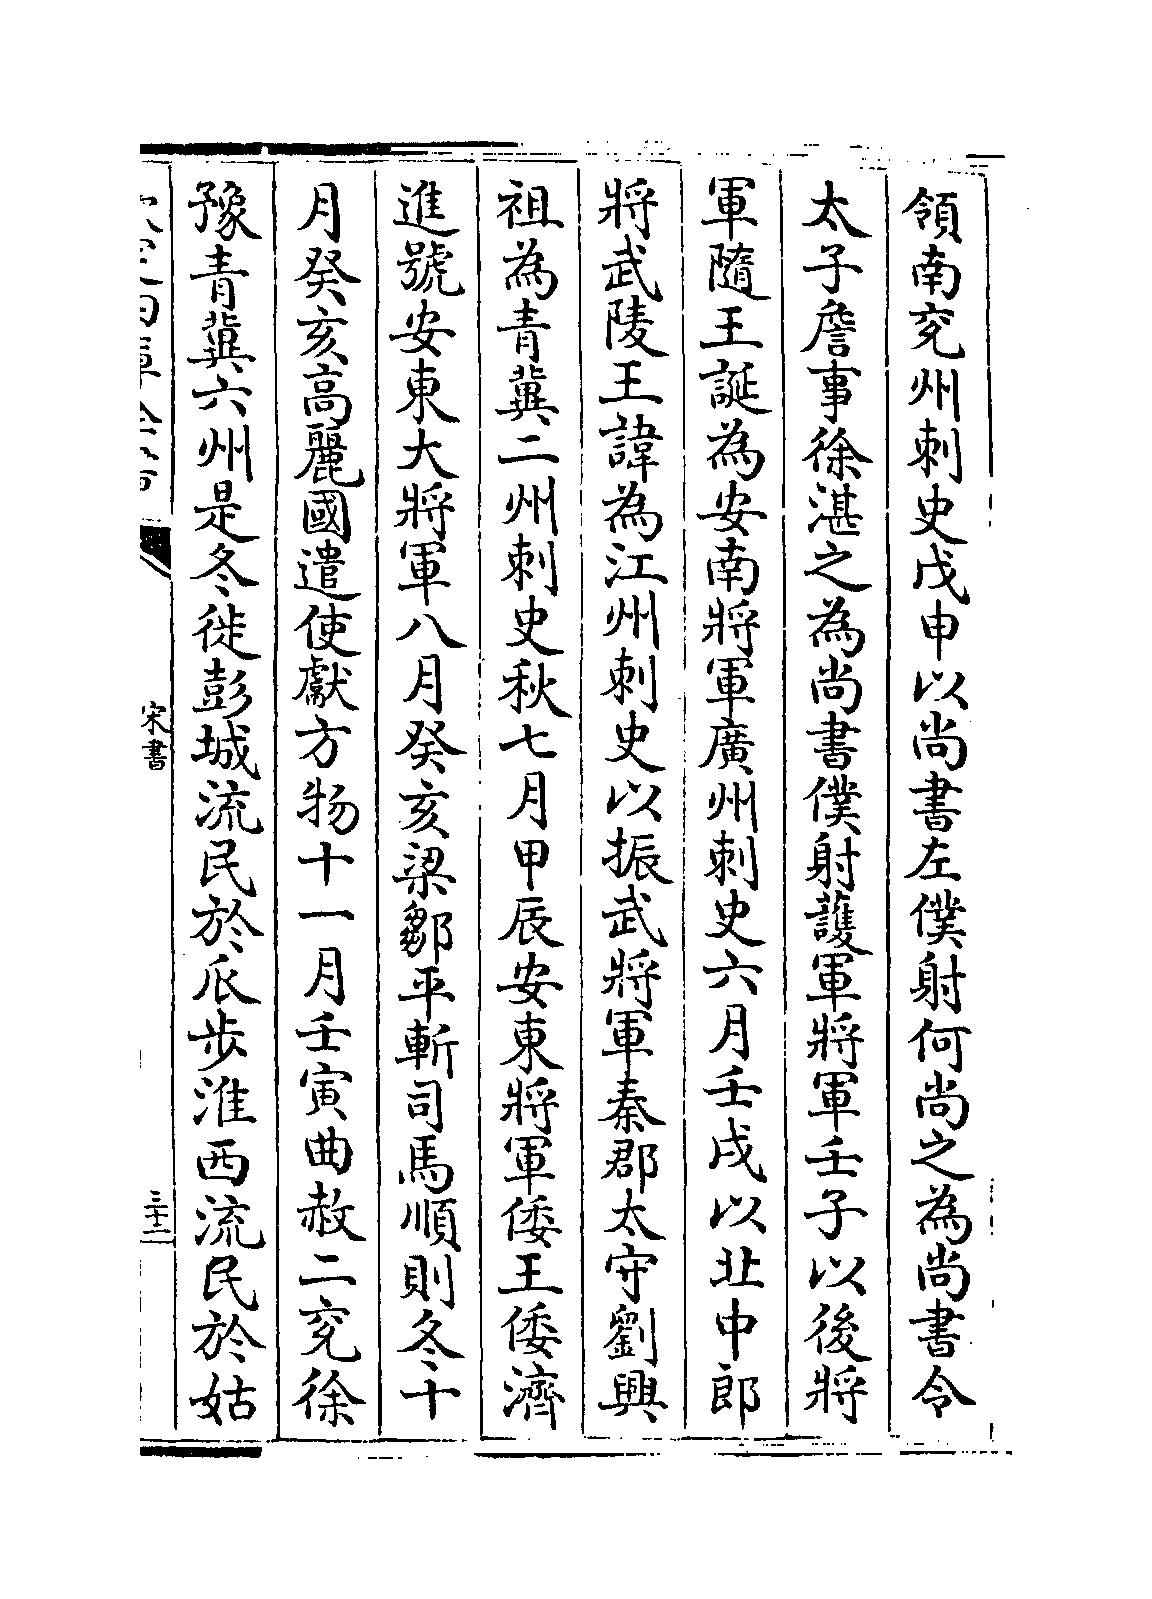 領南兖州刺史戊申以尚書左僕射何尚之為尚書令
太子詹事徐湛之為尚書僕射護軍將軍壬子以後將
軍隨王誕為安南將軍廣州刺史六月壬戌以北中郎
將武陵王諱為江州刺史以振武將軍秦郡太守劉興
祖為青冀二州刺史秋七月甲辰安東將軍倭王倭濟
進號安東大將軍八月癸亥梁鄒平斬司馬順則冬十
月癸亥高麗國遣使獻方物十一月壬寅曲赦二兖徐
豫青冀六州是冬徙彭城流民於瓜步淮西流民於姑
宋書
三十二